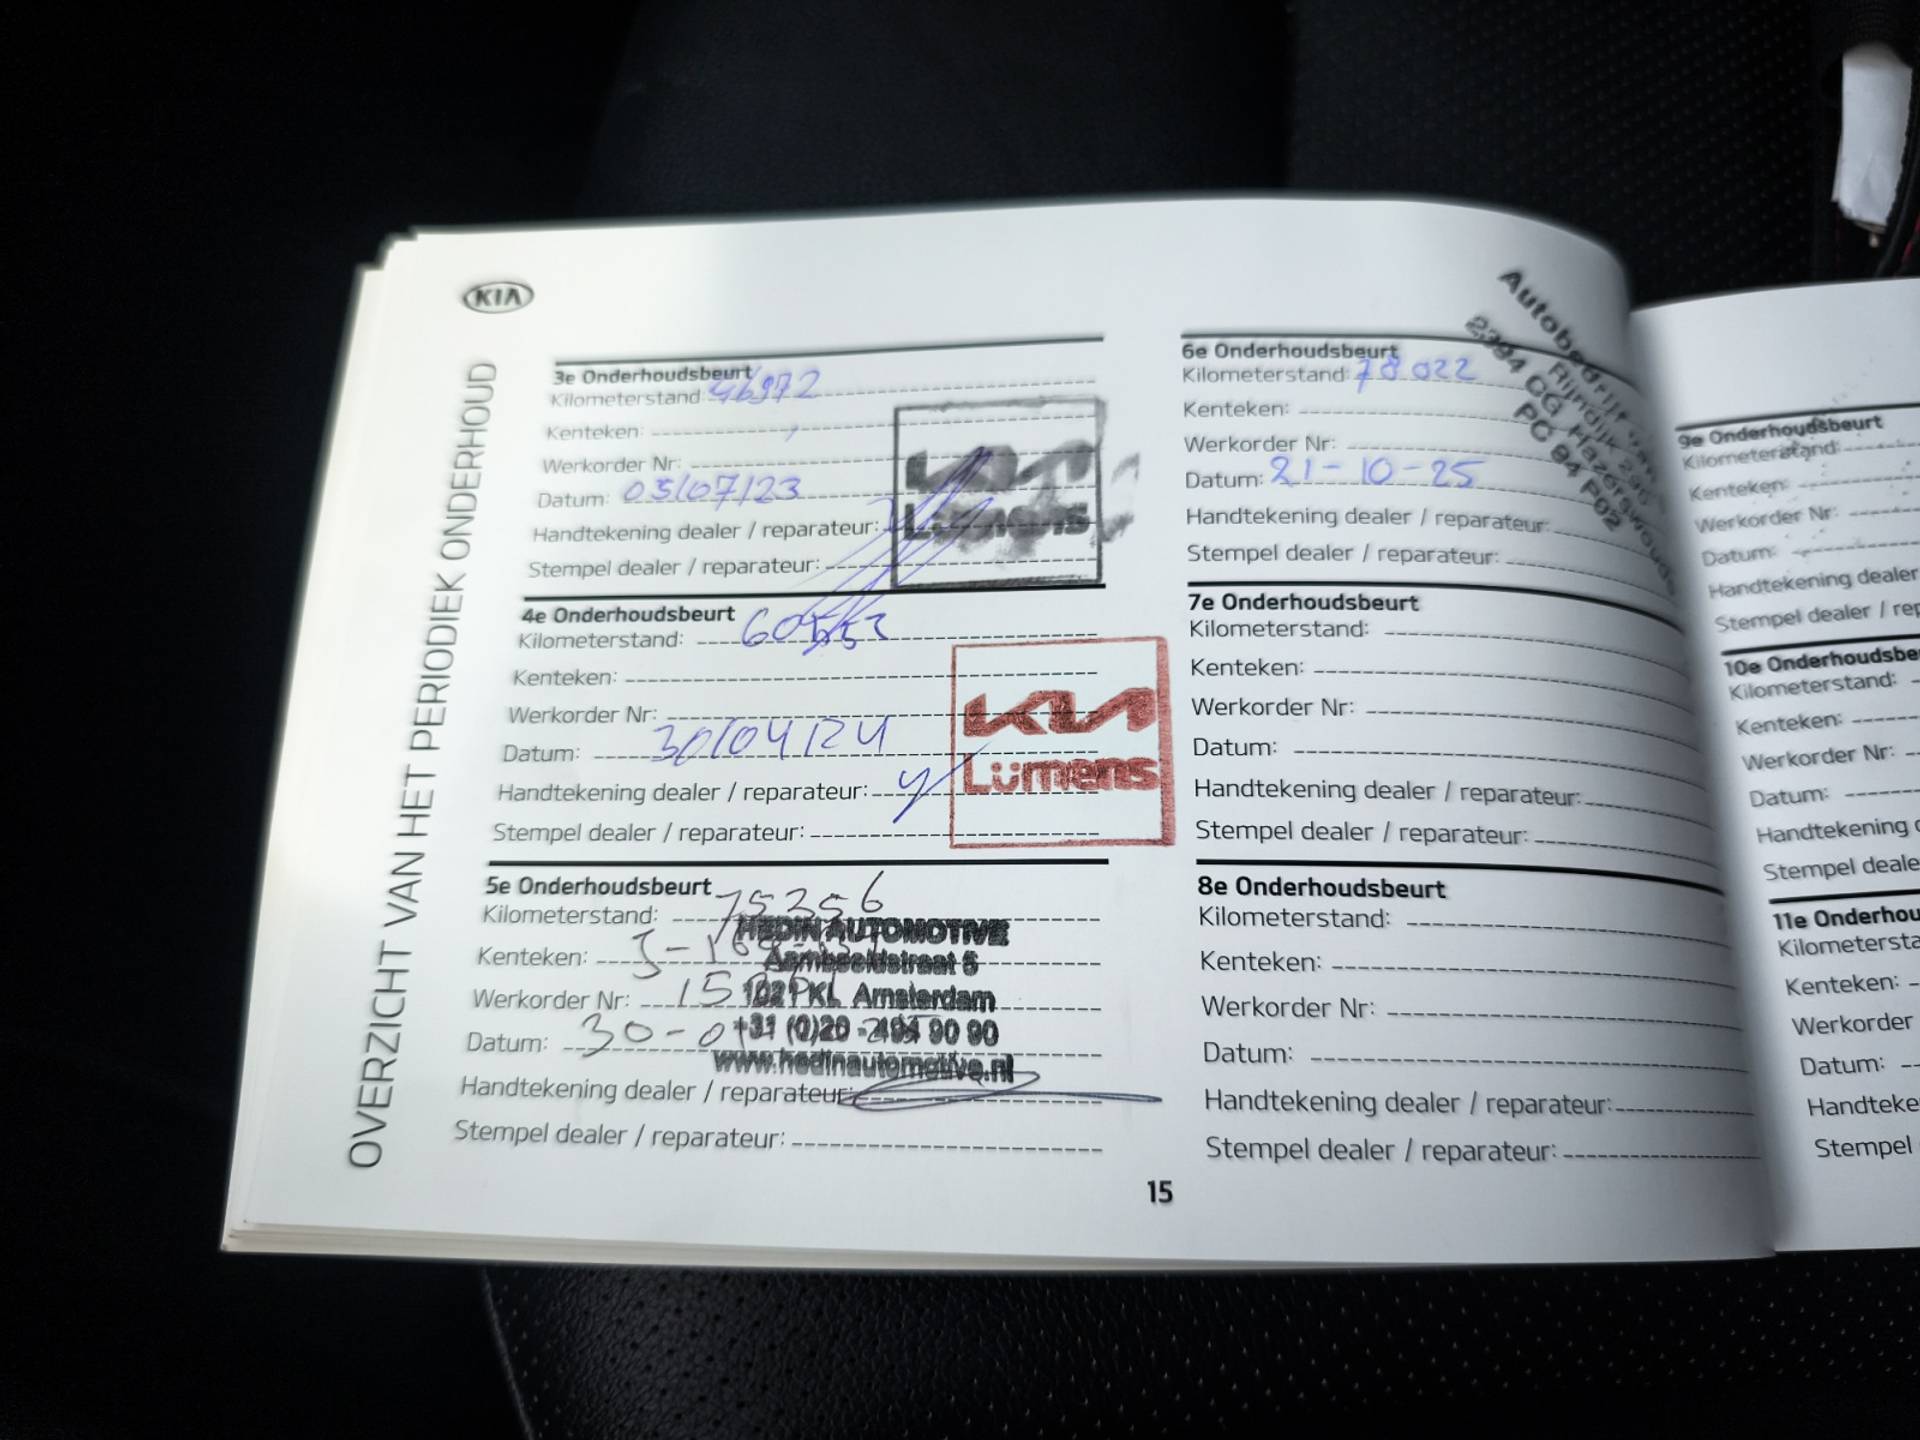 KIA
OVERZICHT VAN HET PERIODIEK ONDERHOUD
3e Onderhoudsbeurt
Kilometerstand: 46972
Kenteken:
Werkorder Nr:
Datum: 03/07/23
Handtekening dealer / reparateur:
Stempel dealer / reparateur:
KIA
Lümens
4e Onderhoudsbeurt
Kilometerstand: 60553
Kenteken:
Werkorder Nr:
Datum: 30/04/24
Handtekening dealer / reparateur:
Stempel dealer / reparateur:
KIA
Lümens
5e Onderhoudsbeurt
Kilometerstand: 75356
Kenteken:
Werkorder Nr:
Datum: 30-0
Handtekening dealer / reparateur:
Stempel dealer / reparateur:
HEDIN AUTOMOTIVE
Aambeeldstraat 6
1021 KL Amsterdam
+31 (0)20 - 494 90 90
www.hedinautomotive.nl
6e Onderhoudsbeurt
Kilometerstand: 78022
Kenteken:
Werkorder Nr:
Datum: 21-10-25
Handtekening dealer / reparateur:
Stempel dealer / reparateur:
Autobedrijf
Rijndijk 290
2394 CG Hazerswoude
PC 94 P02
7e Onderhoudsbeurt
Kilometerstand:
Kenteken:
Werkorder Nr:
Datum:
Handtekening dealer / reparateur:
Stempel dealer / reparateur:
8e Onderhoudsbeurt
Kilometerstand:
Kenteken:
Werkorder Nr:
Datum:
Handtekening dealer / reparateur:
Stempel dealer / reparateur:
15
9e Onderhoudsbeurt
Kilometerstand:
Kenteken:
Werkorder Nr:
Datum:
Handtekening dealer
Stempel dealer / rep
10e Onderhoudsbe
Kilometerstand:
Kenteken:
Werkorder Nr:
Datum:
Handtekening d
Stempel deale
11e Onderhou
Kilometersta
Kenteken:
Werkorder
Datum:
Handteke
Stempel